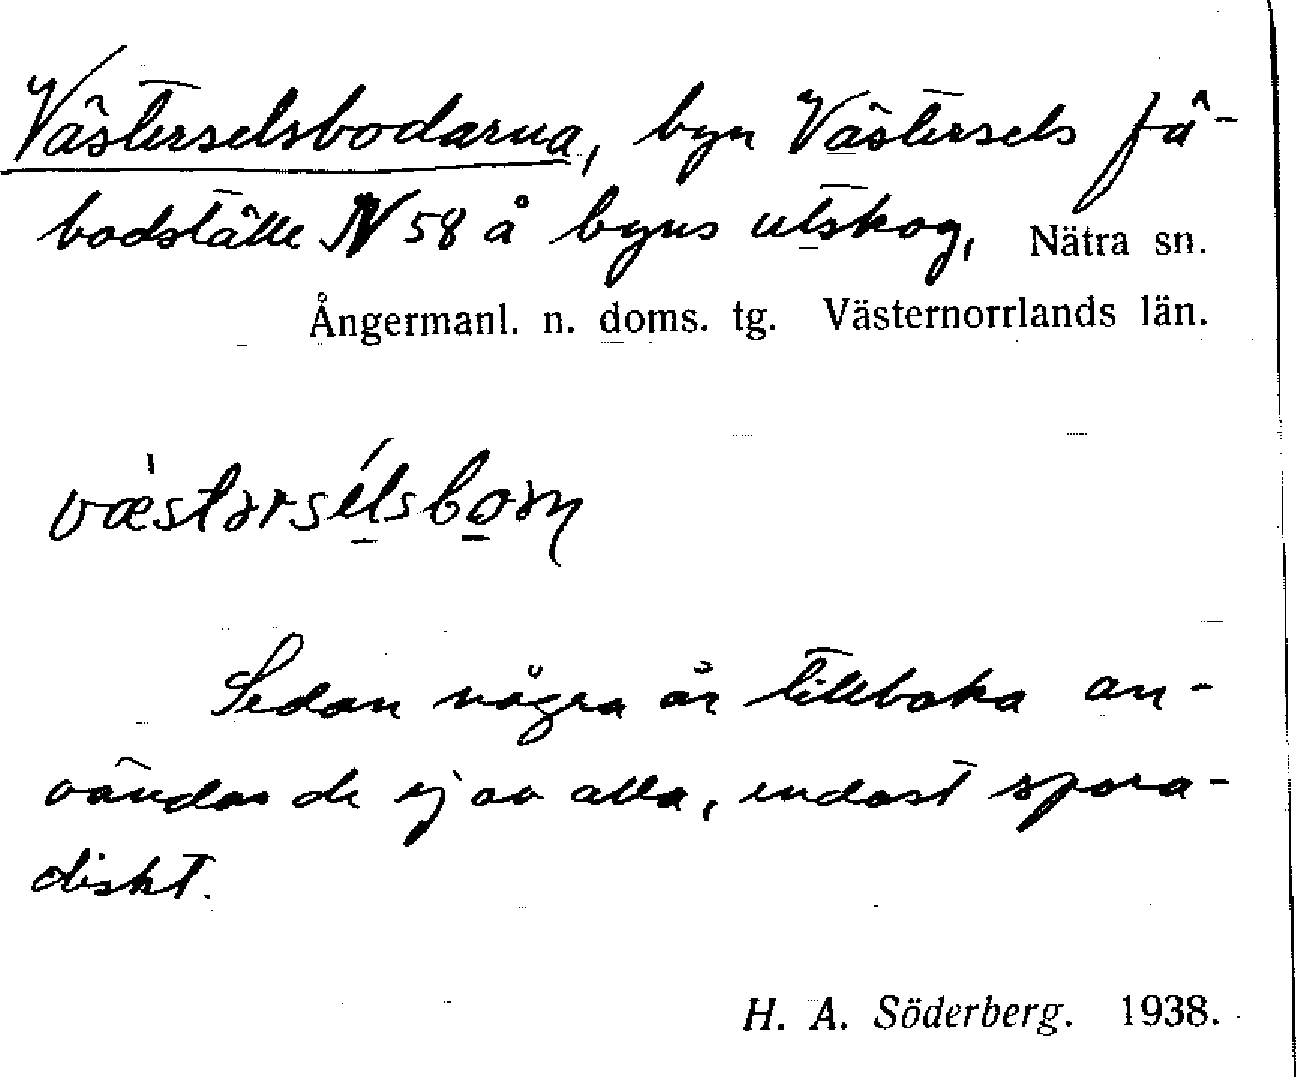 Västerselsbodarna, byn Västersels fä-
bodställe N 58 å byns utskog, Nätra sn.
Ångermanl. n. doms. tg. Västernorrlands län.
væ̀stərsélsboən
Sedan några år tillbaka an-
vändas de ej av alla, endast spora-
diskt.
H. A. Söderberg. 1938.